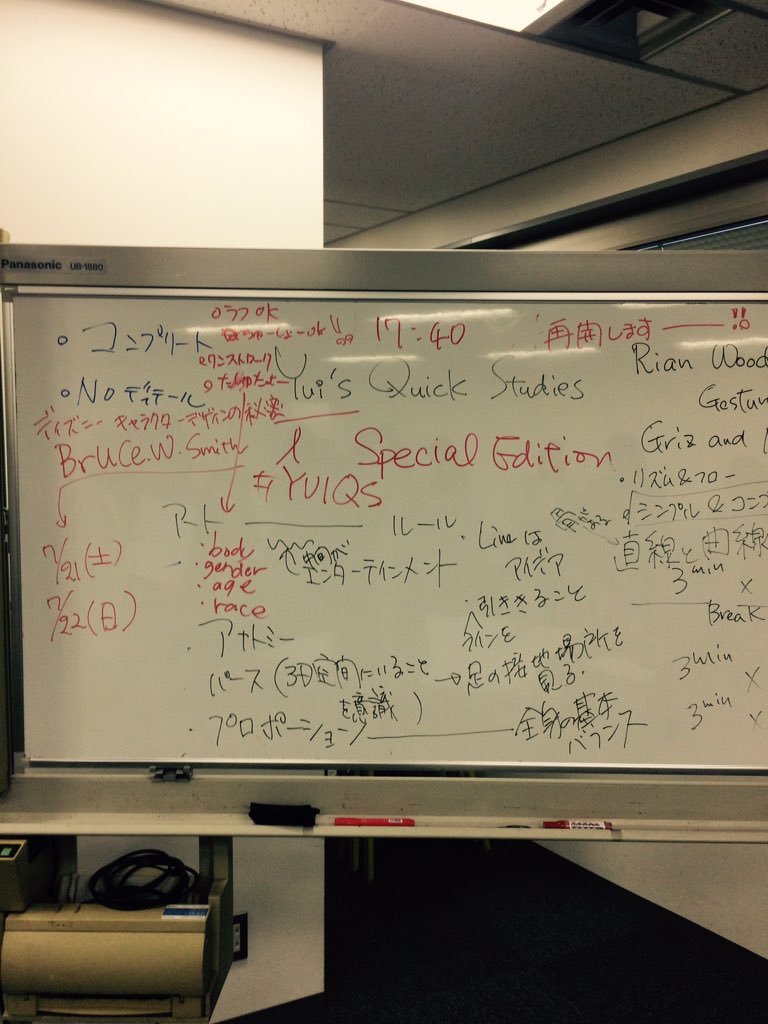 Panasonic UB-1880
・ラフ OK
17:40 再開します!!
・コンプリート
・ワンストローク
・NO ディテール
Yui's Quick Studies
Special Edition
#YUIQS
ディズニー キャラクターデザインの秘密
Bruce.W.Smith
7/21(土)
7/22(日)
アート ルール
・body
・gender
・age
・race
エンターテインメント
・アナトミー
パース(3D空間にいること
を意識)
→足の接地場所を
見る.
・プロポーション
全身の基本
バランス
・Lineは
アイデア
・引ききること
ラインを
Rian Wood
Gestur
Griz and
・リズム&フロー
シンプル & コンプ
直線と曲線
3min x
Break
3min x
3min x